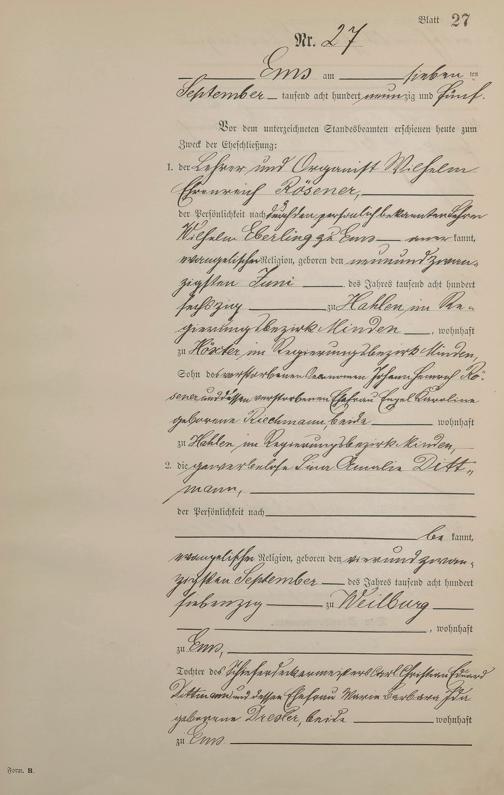 Blatt 27
Nr. 27
Ems am sieben ten
September tausend acht hundert neunzig und fünf.
Vor dem unterzeichneten Standesbeamten erschienen heute zum
Zweck der Eheschließung:
1. der Lehrer und Organist Wilhelm
Ehrenreich Rösener,
der Persönlichkeit nach durch den persönlich bekannten Lehrer
Wilhelm Eberling zu Ems aner kannt,
evangelischer Religion, geboren den neunundzwan-
zigsten Juni des Jahres tausend acht hundert
sechszig zu Hahlen, im Re-
gierungsbezirk Minden, wohnhaft
zu Höxter, im Regierungsbezirk Minden,
Sohn des verstorbenen Oeconomen Johann Heinrich Rö-
sener und dessen verstorbenen Ehefrau Engel Karoline
geborene Riechmann, beide wohnhaft
zu Hahlen, im Regierungsbezirk Minden,
2. die gewerbelose Lina Amalie Ditt-
mann,
der Persönlichkeit nach
be kannt,
evangelischer Religion, geboren den vierundzwan-
zigsten September des Jahres tausend acht hundert
siebenzig zu Weilburg
, wohnhaft
zu Ems,
Tochter des Schieferdeckermeisters Carl Christian Eduard
Dittmann und dessen Ehefrau Maria Barbara Ida
geborene Dresler, beide wohnhaft
zu Ems
Form. B.